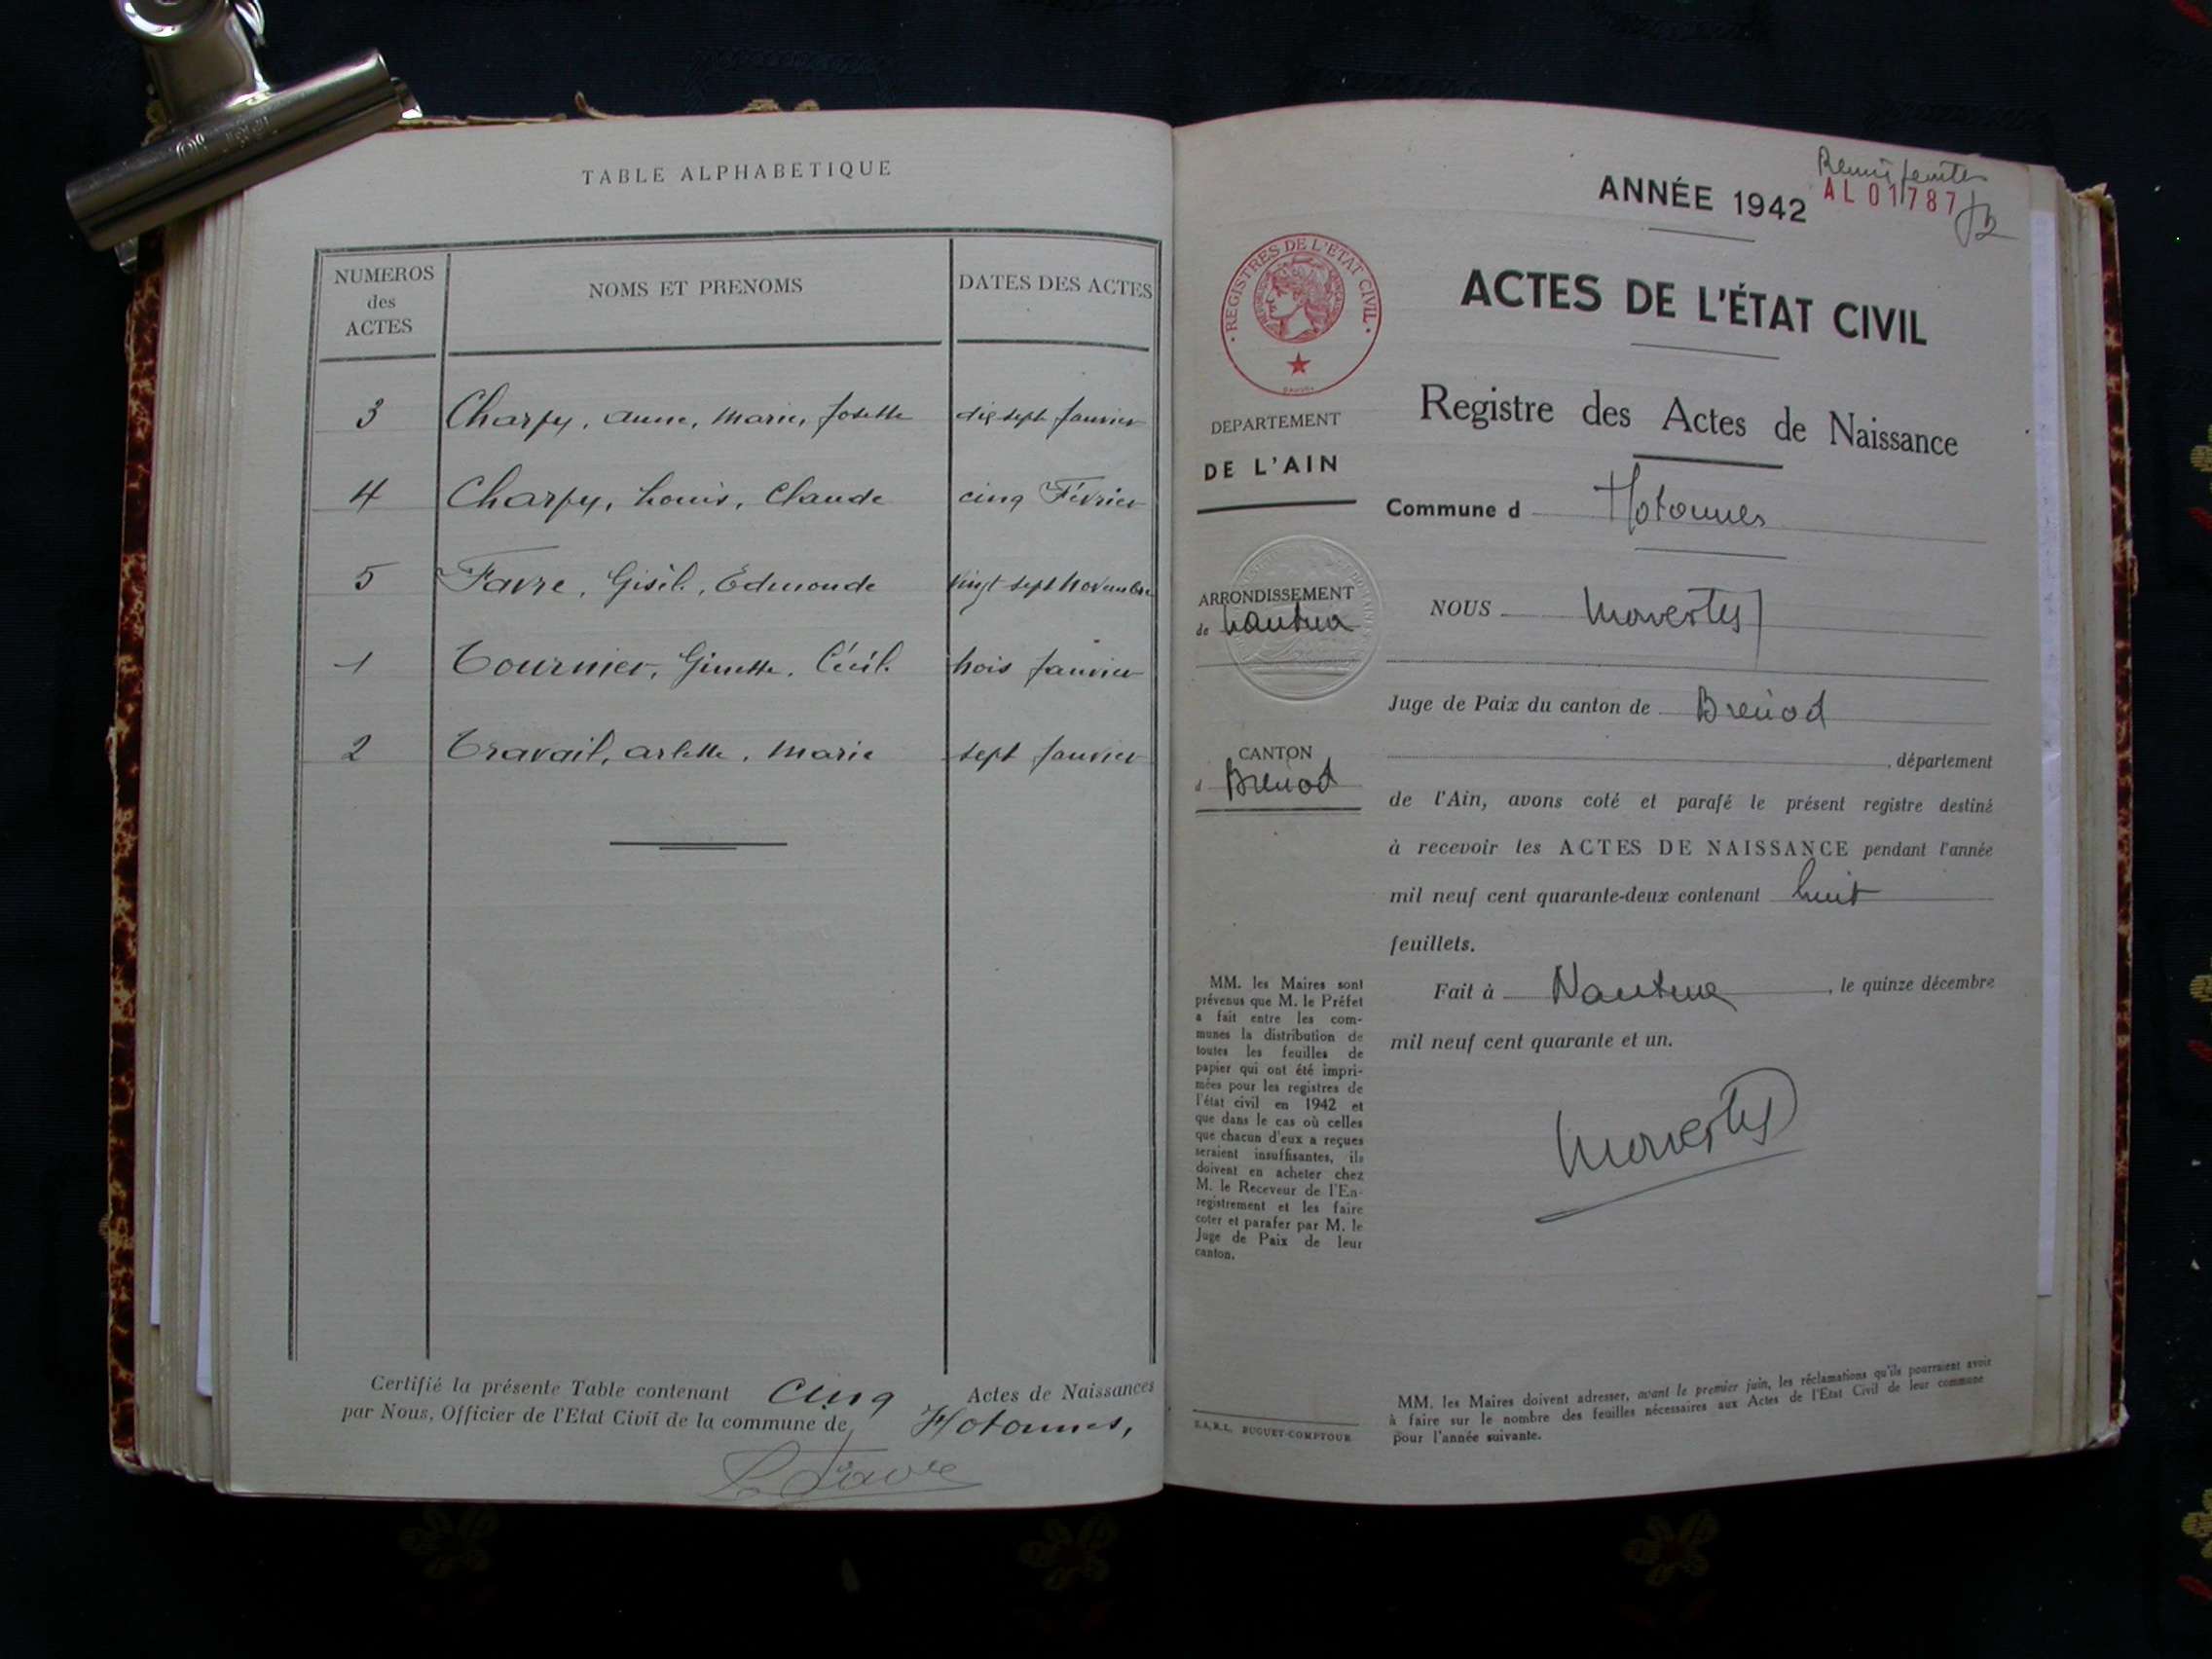 TABLE ALPHABETIQUE
NUMEROS des ACTES
NOMS ET PRENOMS
DATES DES ACTES
3 Charpy, Anne, Marie, Josette dix sept Janvier
4 Charpy, Louis, Claude cinq Février
5 Favre, Gisèle, Edmonde vingt sept Novembre
1 Tournier, Ginette, Cécile trois Janvier
2 Travail, Arlette, Marie sept Janvier
Certifié la présente Table contenant Cinq Actes de Naissances
par Nous, Officier de l'Etat Civil de la commune de Hotonnes,
Favre
ANNÉE 1942
AL 01787
REGISTRES DE L'ETAT CIVIL
ACTES DE L'ÉTAT CIVIL
Registre des Actes de Naissance
DEPARTEMENT
DE L'AIN
Commune d Hotonnes
ARRONDISSEMENT
de Nantua
NOUS
Juge de Paix du canton de Brenod
CANTON
d Brenod
, département
de l'Ain, avons coté et parafé le présent registre destiné
à recevoir les ACTES DE NAISSANCE pendant l'année
mil neuf cent quarante-deux contenant huit
feuillets.
Fait à Nantua, le quinze décembre
mil neuf cent quarante et un.
MM. les Maires sont
prévenus que M. le Préfet
a fait entre les com-
munes la distribution de
toutes les feuilles de
papier qui ont été impri-
mées pour les registres de
l'état civil en 1942 et
que dans le cas où celles
que chacun d'eux a reçues
seraient insuffisantes, ils
doivent en acheter chez
M. le Receveur de l'En-
registrement et les faire
coter et parafer par M. le
Juge de Paix de leur
canton.
S.A.R.L. BUGUET-COMPTOUR
MM. les Maires doivent adresser, avant le premier juin, les réclamations qu'ils pourraient avoir
à faire sur le nombre des feuilles nécessaires aux Actes de l'Etat Civil de leur commune
pour l'année suivante.